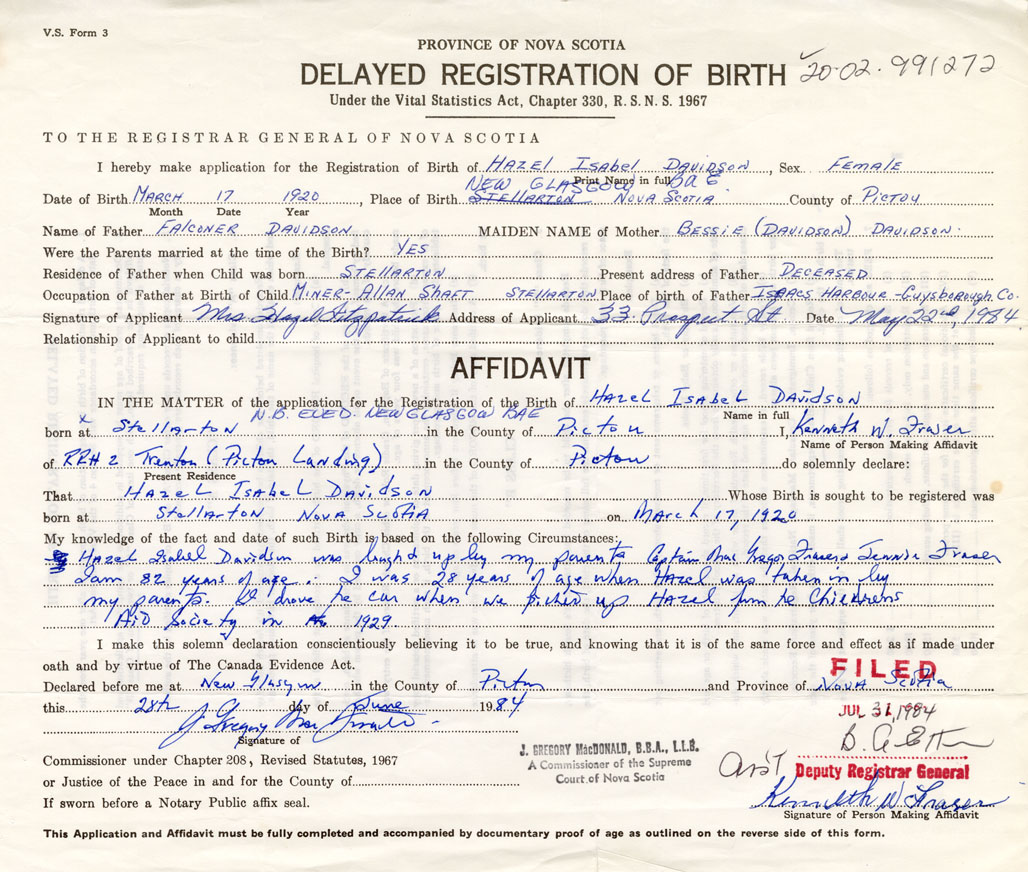 V.S. Form 3
PROVINCE OF NOVA SCOTIA
DELAYED REGISTRATION OF BIRTH 20-02-991272
Under the Vital Statistics Act, Chapter 330, R.S.N.S. 1967
TO THE REGISTRAR GENERAL OF NOVA SCOTIA
I hereby make application for the Registration of Birth of HAZEL ISABEL DAVIDSON, Sex FEMALE
NEW GLASGOW Print Name in full BAE
Date of Birth MARCH 17 1920, Place of Birth STELLARTON NOVA SCOTIA County of PICTOU
Month Date Year
Name of Father FALCONER DAVIDSON MAIDEN NAME of Mother BESSIE (DAVIDSON) DAVIDSON
Were the Parents married at the time of the Birth? YES
Residence of Father when Child was born STELLARTON Present address of Father DECEASED
Occupation of Father at Birth of Child MINER-ALLAN SHAFT STELLARTON Place of birth of Father ISAACS HARBOUR-GUYSBOROUGH CO.
Signature of Applicant Mrs Hazel Fitzpatrick Address of Applicant 33 Prospect St Date May 22nd, 1984
Relationship of Applicant to child
AFFIDAVIT
IN THE MATTER of the application for the Registration of the Birth of HAZEL ISABEL DAVIDSON
N.B. EVED. NEW GLASGOW BAE Name in full
x born at Stellarton in the County of Pictou I, Kenneth W. Fraser
Name of Person Making Affidavit
of RR# 2 Trenton (Pictou Landing) in the County of Pictou do solemnly declare:
Present Residence
That HAZEL ISABEL DAVIDSON Whose Birth is sought to be registered was
born at STELLARTON NOVA SCOTIA on March 17, 1920
My knowledge of the fact and date of such Birth is based on the following Circumstances:
Hazel Isabel Davidson was brought up by my parents Captain MacGregor Fraser & Jennie Fraser
I am 82 years of age. I was 28 years of age when Hazel was taken in by
my parents. I drove the car when we picked up Hazel from the Childrens
Aid Society in 1929.
I make this solemn declaration conscientiously believing it to be true, and knowing that it is of the same force and effect as if made under
oath and by virtue of The Canada Evidence Act.
FILED
Declared before me at New Glasgow in the County of Pictou and Province of Nova Scotia
this 28th day of June 1984
JUL 31, 1984
J. Gregory MacDonald
Signature of
Commissioner under Chapter 208, Revised Statutes, 1967
or Justice of the Peace in and for the County of
If sworn before a Notary Public affix seal.
J. GREGORY MacDONALD, B.B.A., L.L.B.
A Commissioner of the Supreme
Court of Nova Scotia
Ass't Deputy Registrar General
Kenneth W Fraser
Signature of Person Making Affidavit
This Application and Affidavit must be fully completed and accompanied by documentary proof of age as outlined on the reverse side of this form.